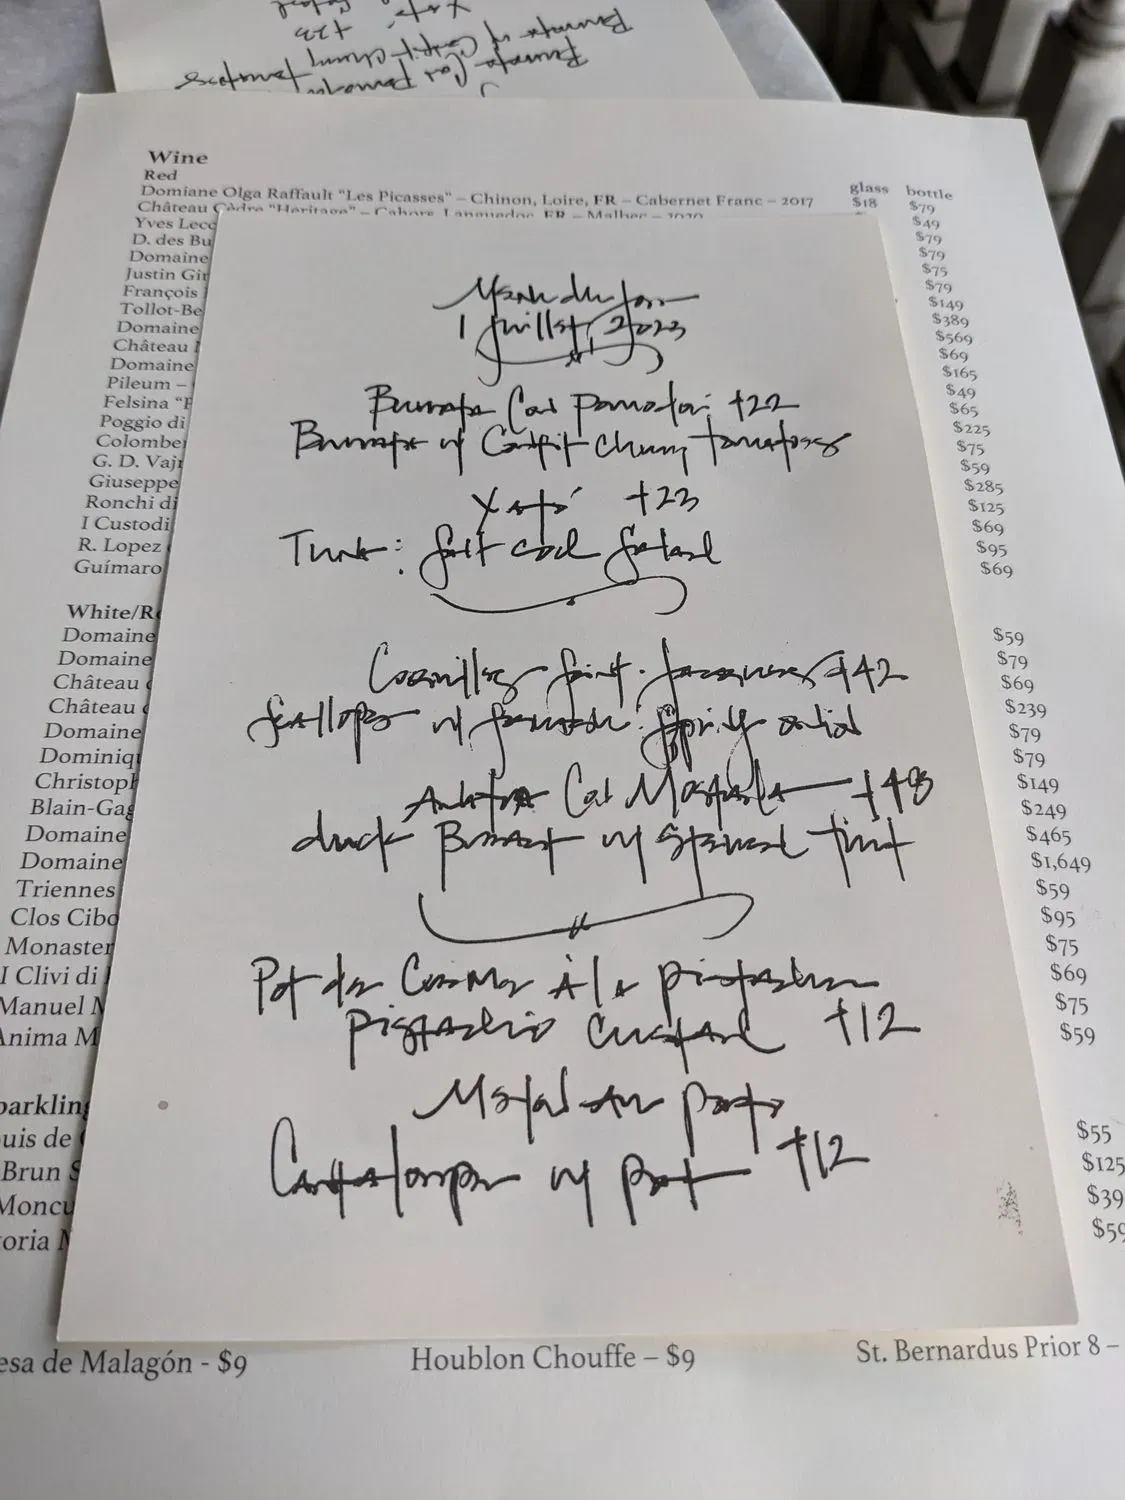 Wine
Red
glass bottle
Domiane Olga Raffault "Les Picasses" – Chinon, Loire, FR – Cabernet Franc – 2017 $18 $79
Château Cèdre "Heritage" – Cahors, Languedoc, FR – Malbec – 2020 $49
Yves Lecc $79
D. des Bu $79
Domaine $75
Justin Gir $79
François $149
Tollot-Be $389
Domaine $569
Château $69
Domaine $165
Pileum – $49
Felsina "F $65
Poggio di $225
Colombe $75
G. D. Vaj $59
Giuseppe $285
Ronchi di $125
I Custodi $69
R. Lopez $95
Guímaro $69
White/R
Domaine $59
Domaine $79
Château $69
Château $239
Domaine $79
Dominiq $79
Christoph $149
Blain-Gag $249
Domaine $465
Domaine $1,649
Triennes $59
Clos Cibo $95
Monaster $75
I Clivi di $69
Manuel M $75
Anima M $59
parkling
ouis de $55
Brun S $125
Moncu $39
toria M $59
Menu du Jour
1 Juillet, 2023
Burrata Coi Pomodori +22
Burrata w/ Confit Cherry tomatoes
Xató +23
Tuna: salt cod salad
Coquilles Saint-Jacques +42
Scallops w/ spring onion
Anatra Coi Mostarda +48
duck Breast w/ stewed fruit
Pot de Creme À la pistache
Pistachio Custard +12
Melon au porto
Cantaloupe w/ port +12
esa de Malagón - $9
Houblon Chouffe – $9
St. Bernardus Prior 8 –